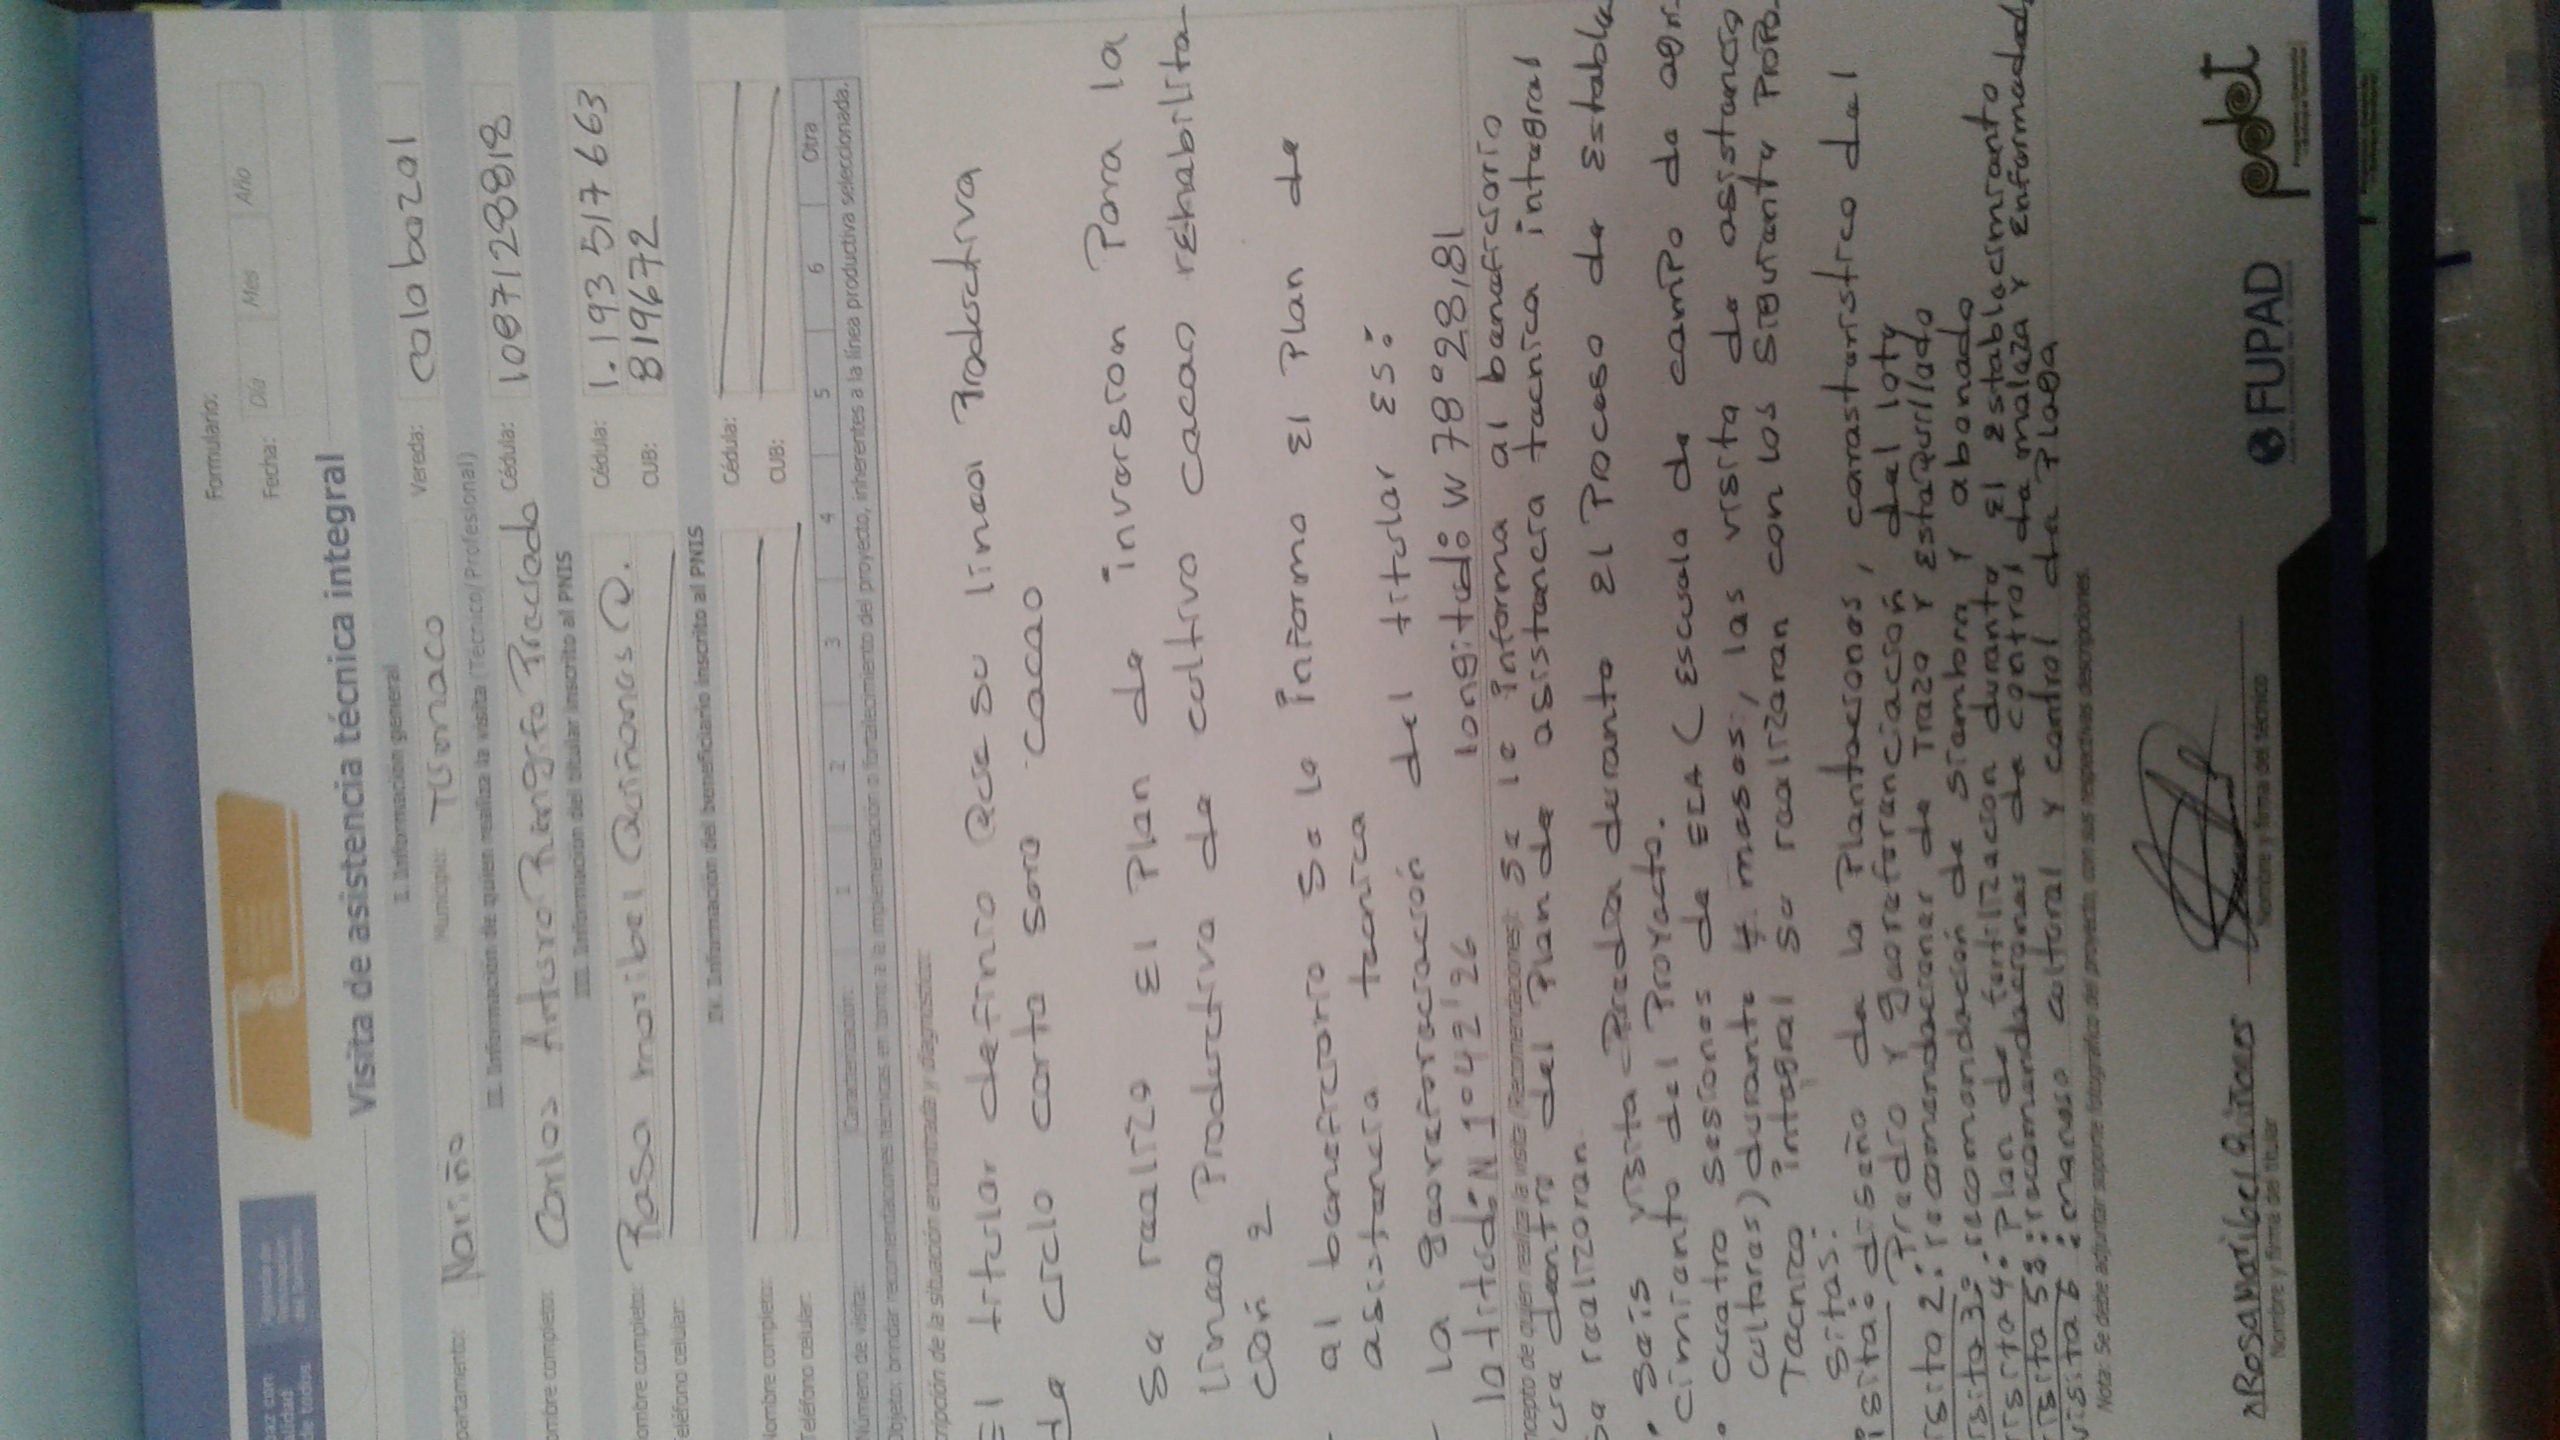 Formulario:
Fecha: Día Mes Año
Visita de asistencia técnica integral
I. Información general
partamento: Nariño Municipio: Tumaco Vereda: calabazal
II. Información de quien realiza la visita (Técnico/Profesional)
ombre completo: Carlos Arturo Ringifo Preciado Cédula: 1087128818
III. Información del titular inscrito al PNIS
ombre completo: Rosa maribel Quiñones Q. Cédula: 1.193517663
eléfono celular: CUB: 819672
IV. Información del beneficiario inscrito al PNIS
Nombre completo: Cédula:
Teléfono celular: CUB:
Número de visita: Caracterización: 1 2 3 4 5 6 Otra
Objeto: brindar recomendaciones técnicas en torno a la implementación o fortalecimiento del proyecto, inherentes a la línea productiva seleccionada.
cripción de la situación encontrada y diagnóstico:
El titular definio que su linea Productiva
de ciclo corto sera cacao
Se realizo El Plan de inversion Para la
linea Productiva de cultivo cacao rehabilita
cón 2
- al beneficiario se le informo El Plan de
asistencia tecnica
- la georeferaciación del titular Es:
latitud: N 1°42'26 longitud: W 78°28,81
ncepto de quien realiza la visita (Recomendaciones): se le informa al beneficiario
cra dentro del Plan de asistencia tecnica integral
se realizaran
• seis visita Predia durante El Proceso de Estable
cimiento del Proyecto.
• cuatro sesiones de ECA (Escuela de campo de agri
cultores) durante 4 meses, las visita de asistencia
Tecnica integral se realizaran con los siguiente Propo
sitos:
isita: diseño de la Plantaciones, carasteristico del
Predio y georeferanciación del lote
isita 2: recomendaciones de Trazo y Estaquillado
isita 3: recomendación de siembra y abonado
isita 4: Plan de fertilización durante El Establecimiento
isita 5: recomendaciones de control de maleza y Enfermedad,
visita 6: manejo cultural y control de Plaga
Nota: Se debe adjuntar soporte fotográfico del proyecto, con sus respectivas descripciones.
Rosa Maribel Quiñones
Nombre y firma del titular Nombre y firma del técnico
FUPAD pdet